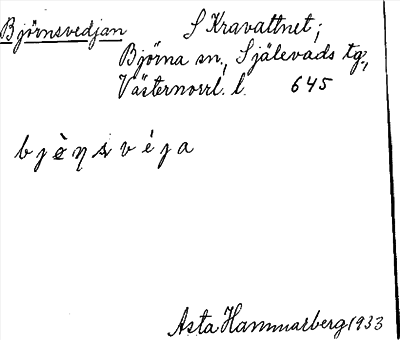 Björnsvedjan S Kravattnet;
Björna sn., Själevads tg.,
Västernorrl. l. 645
Asta Hammarberg 1933